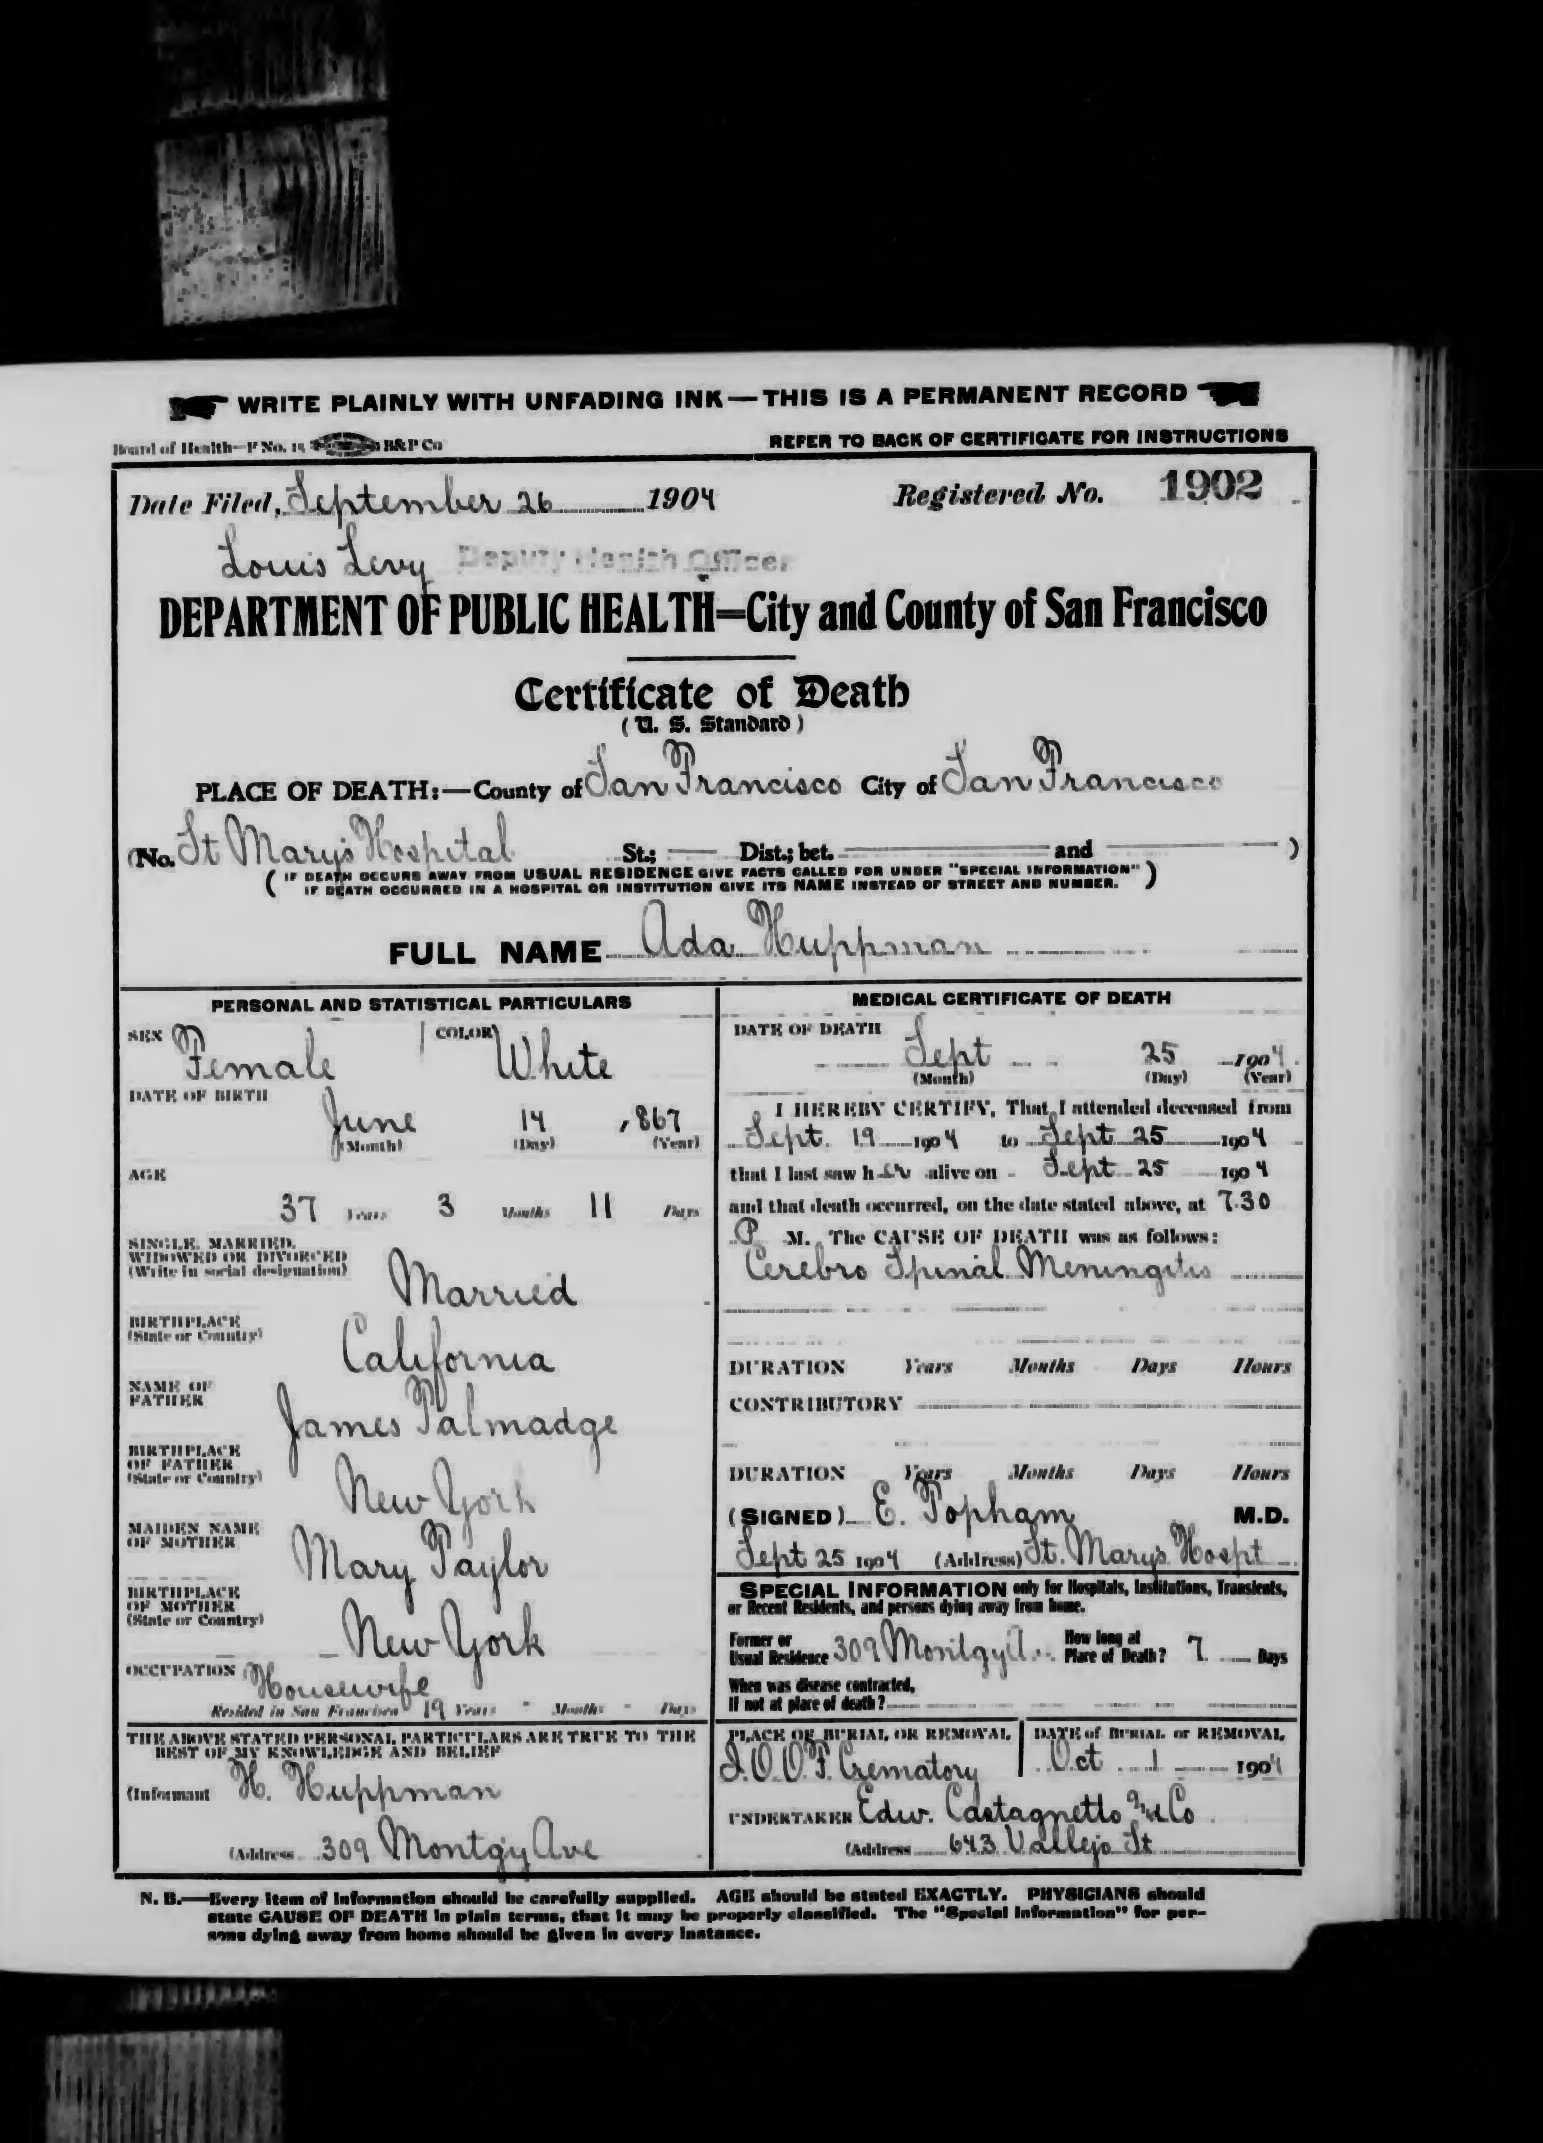 WRITE PLAINLY WITH UNFADING INK—THIS IS A PERMANENT RECORD
Board of Health—F No. 15 B&P Co REFER TO BACK OF CERTIFICATE FOR INSTRUCTIONS
Date Filed, September 26 1904 Registered No. 1902
Louis Levy Deputy Health Officer
DEPARTMENT OF PUBLIC HEALTH=City and County of San Francisco
Certificate of Death
(U. S. Standard)
PLACE OF DEATH:—County of San Francisco City of San Francisco
(No. St Mary's Hospital St.; — Dist.; bet. — and — )
( IF DEATH OCCURS AWAY FROM USUAL RESIDENCE GIVE FACTS CALLED FOR UNDER "SPECIAL INFORMATION" )
IF DEATH OCCURRED IN A HOSPITAL OR INSTITUTION GIVE ITS NAME INSTEAD OF STREET AND NUMBER.
FULL NAME Ada Huppman
PERSONAL AND STATISTICAL PARTICULARS
SEX Female COLOR White
DATE OF BIRTH
June 14 , 867
(Month) (Day) (Year)
AGE
37 Years 3 Months 11 Days
SINGLE, MARRIED,
WIDOWED OR DIVORCED
(Write in social designation) Married
BIRTHPLACE
(State or Country) California
NAME OF
FATHER James Talmadge
BIRTHPLACE
OF FATHER
(State or Country) New York
MAIDEN NAME
OF MOTHER Mary Taylor
BIRTHPLACE
OF MOTHER
(State or Country) New York
OCCUPATION Housewife
Resided in San Francisco 19 Years - Months - Days
THE ABOVE STATED PERSONAL PARTICULARS ARE TRUE TO THE
BEST OF MY KNOWLEDGE AND BELIEF
(Informant H. Huppman
(Address 309 Montg'y Ave
MEDICAL CERTIFICATE OF DEATH
DATE OF DEATH
Sept 25 1904
(Month) (Day) (Year)
I HEREBY CERTIFY, That I attended deceased from
Sept. 19 1904 to Sept 25 1904
that I last saw her alive on Sept 25 1904
and that death occurred, on the date stated above, at 7.30
P M. The CAUSE OF DEATH was as follows:
Cerebro Spinal Meningitis
DURATION Years Months Days Hours
CONTRIBUTORY
DURATION Years Months Days Hours
(SIGNED) E. Topham M.D.
Sept 25 1904 (Address) St. Mary's Hospt
SPECIAL INFORMATION only for Hospitals, Institutions, Transients,
or Recent Residents, and persons dying away from home.
Former or
Usual Residence 309 Montgy A.. How long at
Place of Death? 7 Days
When was disease contracted,
If not at place of death?
PLACE OF BURIAL OR REMOVAL DATE of BURIAL or REMOVAL
I.O.O.F. Crematory Oct 1 1904
UNDERTAKER Edw. Castagnetto & Co
(Address 643 Vallejo St
N. B.—Every item of information should be carefully supplied. AGE should be stated EXACTLY. PHYSICIANS should
state CAUSE OF DEATH in plain terms, that it may be properly classified. The "Special Information" for per-
sons dying away from home should be given in every instance.